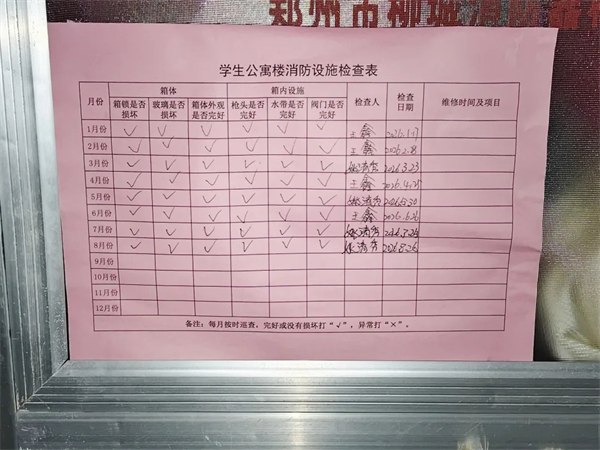 郑州市柳城消防器
学生公寓楼消防设施检查表
月份 箱体 箱内设施 检查人 检查日期 维修时间及项目
箱锁是否损坏 玻璃是否损坏 箱体外观是否完好 枪头是否完好 水带是否完好 阀门是否完好
1月份 ✓ ✓ ✓ ✓ ✓ ✓ 王鑫
2月份 ✓ ✓ ✓ ✓ ✓ ✓ 王鑫 2026.2.8
3月份 ✓ ✓ ✓ ✓ ✓ ✓ 2026.3.23
4月份 ✓ ✓ ✓ ✓ ✓ ✓ 王鑫 2026.4.25
5月份 ✓ ✓ ✓ ✓ ✓ ✓ 2026.5.30
6月份 ✓ ✓ ✓ ✓ ✓ ✓ 王鑫 2026.6.26
7月份 ✓ ✓ ✓ ✓ ✓ ✓
8月份 ✓ ✓ ✓ ✓ ✓ ✓ 2026.8.26
9月份
10月份
11月份
12月份
备注：每月按时巡查，完好或没有损坏打“√”，异常打“×”。